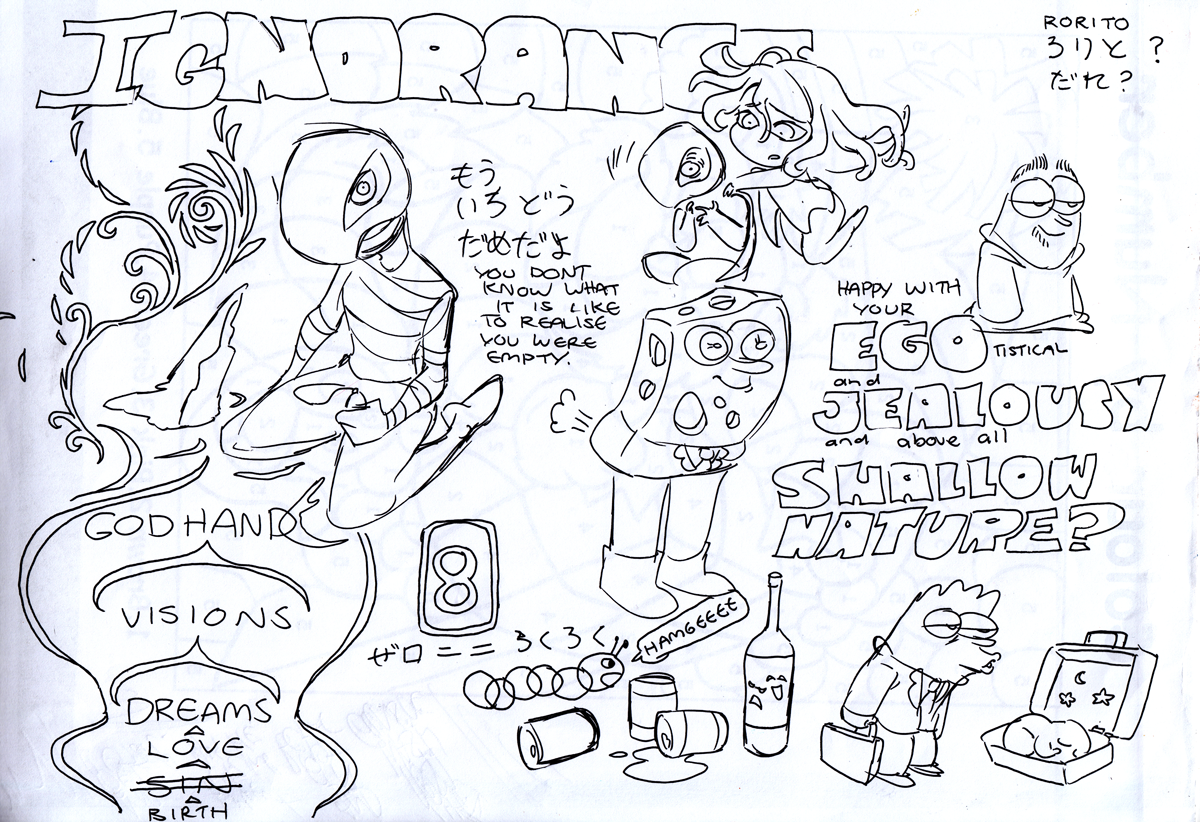 IGNORANCE
RORITO
ろりと?
だれ?
もう
いろどう
だめだよ
YOU DONT
KNOW WHAT
IT IS LIKE
TO REALISE
YOU WERE
EMPTY.
HAPPY WITH
YOUR
EGO
TISTICAL
and
JEALOUSY
and above all
SHALLOW
NATURE?
GODHAND
VISIONS
DREAMS
LOVE
SIN
BIRTH
8
ザロニニ ろくろく
HAMGEEEE